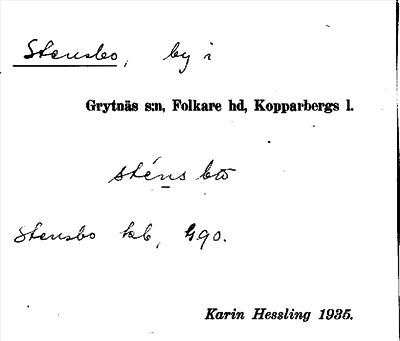 Stensbo, by i
Grytnäs s:n, Folkare hd, Kopparbergs l.
sténs bo
Stensbo tab, G90.
Karin Hessling 1935.